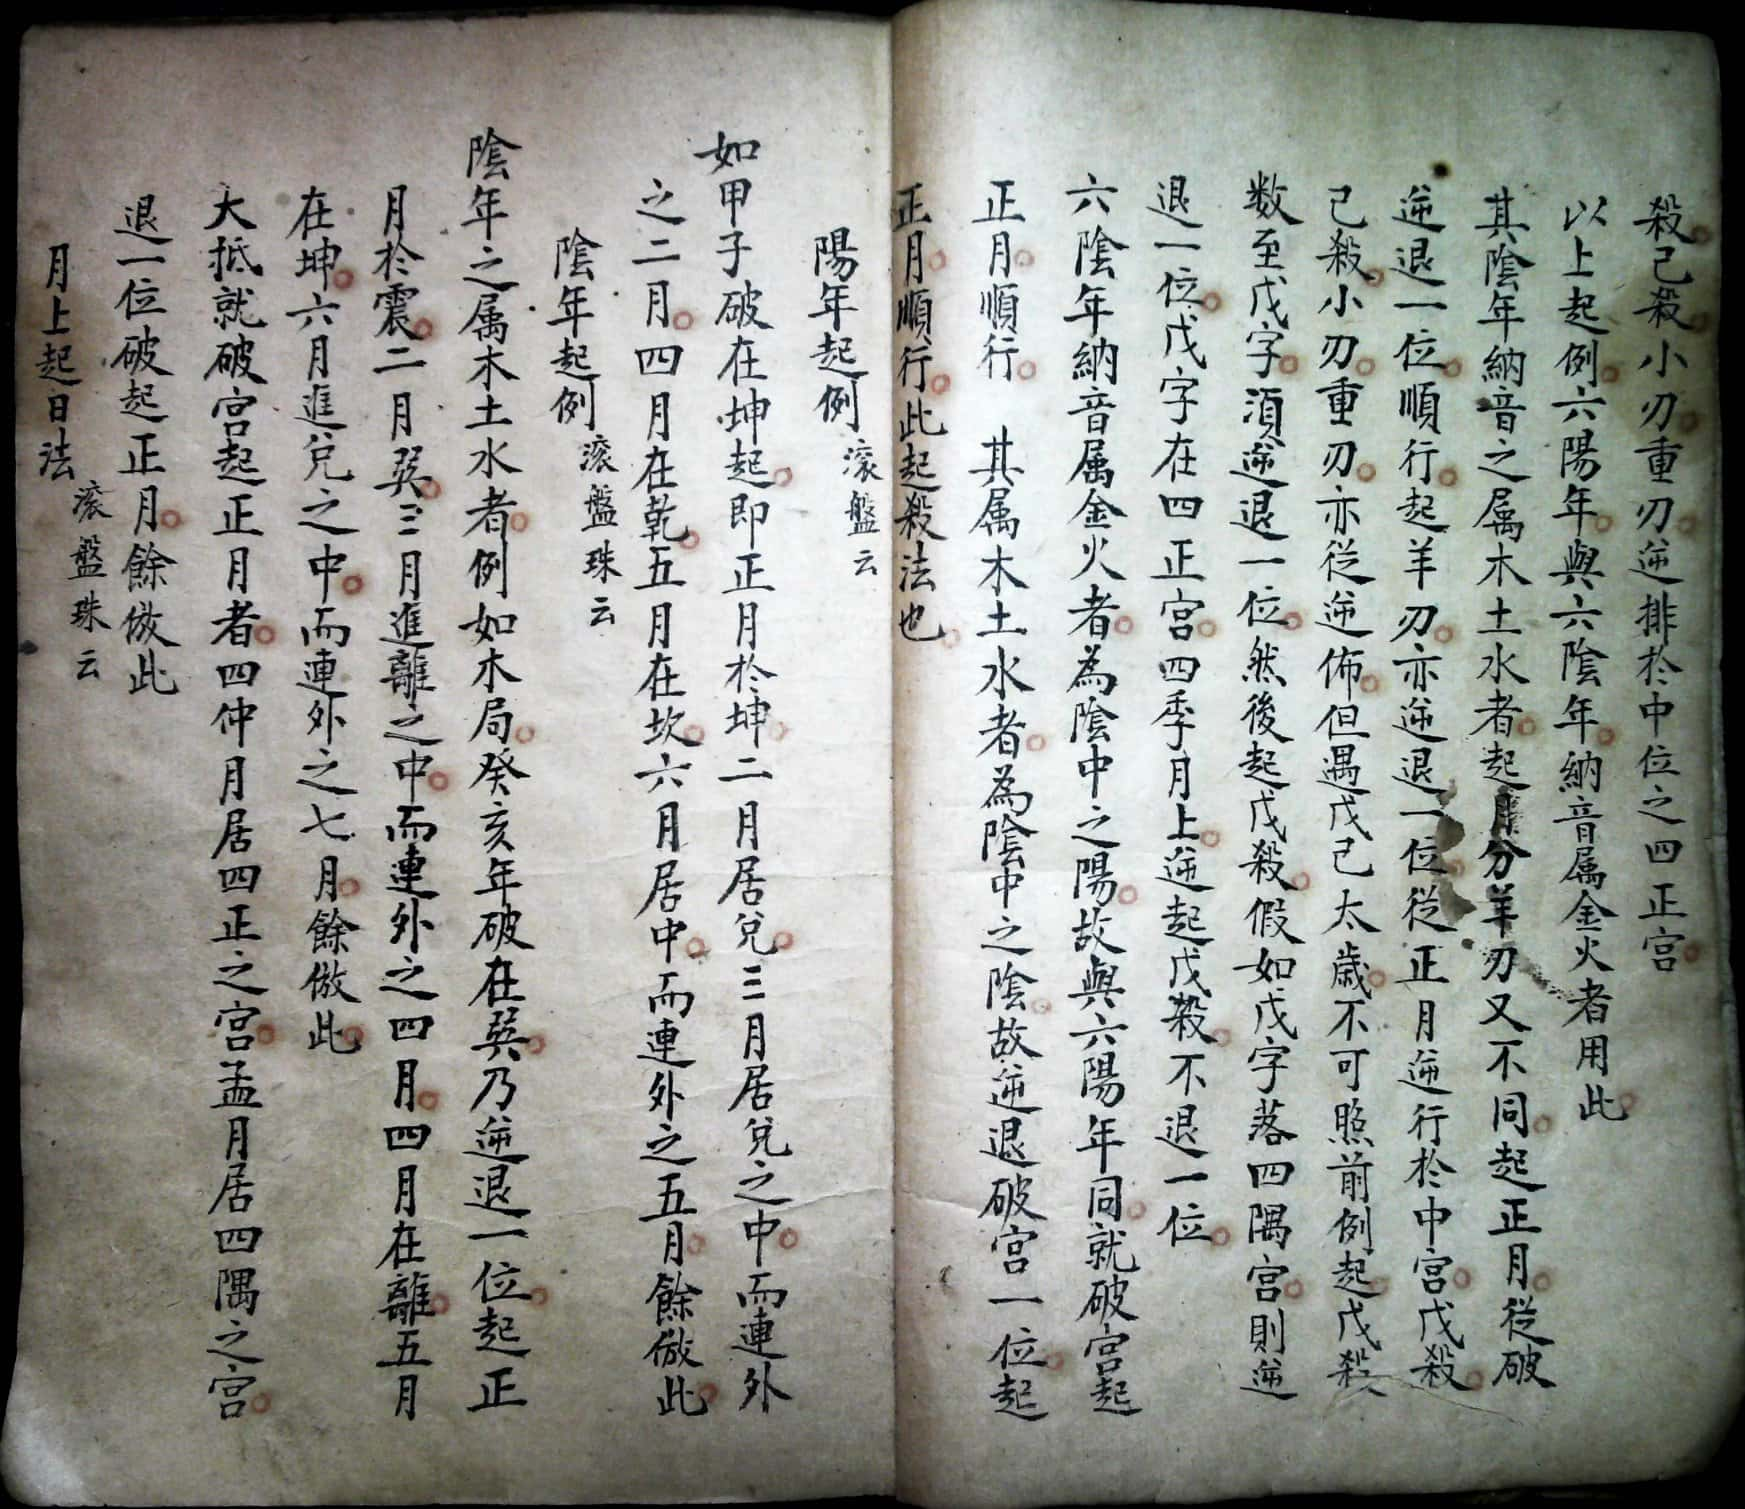 殺己殺小刃重刃逆排於中位之四正宮
以上起例六陽年與六陰年納音属金火者用此
其陰年納音之属木土水者起月分羊刃又不同起正月從破
逆退一位順行起羊刃亦逆退一位從正月逆行於中宮戊殺
己殺小刃重刃亦從逆佈但遇戊己太歲不可照前例起戊殺
数至戊字須逆退一位然後起戊殺假如戊字落四隅宮則逆
退一位戊字在四正宮四季月上逆起戊殺不退一位
六陰年納音属金火者為陰中之陽故與六陽年同就破宮起
正月順行 其属木土水者為陰中之陰故逆退破宮一位起
正月順行此起殺法也
陽年起例 滚盤云
如甲子破在坤起即正月於坤二月居兌三月居兌之中而連外
之二月四月在乾五月在坎六月居中而連外之五月餘倣此
陰年起例 滚盤珠云
陰年之属木土水者例如木局癸亥年破在巽乃逆退一位起正
月於震二月巽三月進離之中而連外之四月四月在離五月
在坤六月進兌之中而連外之七月餘倣此
大抵就破宮起正月者四仲月居四正之宮孟月居四隅之宮
退一位破起正月餘倣此
月上起日法 滚盤珠云